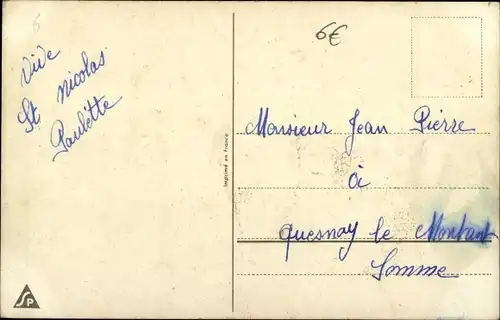 6
6€
Vive
St nicolas
Paulette
Imprimé en France
Monsieur Jean Pierre
à
quesnoy le Montant
Somme
SP